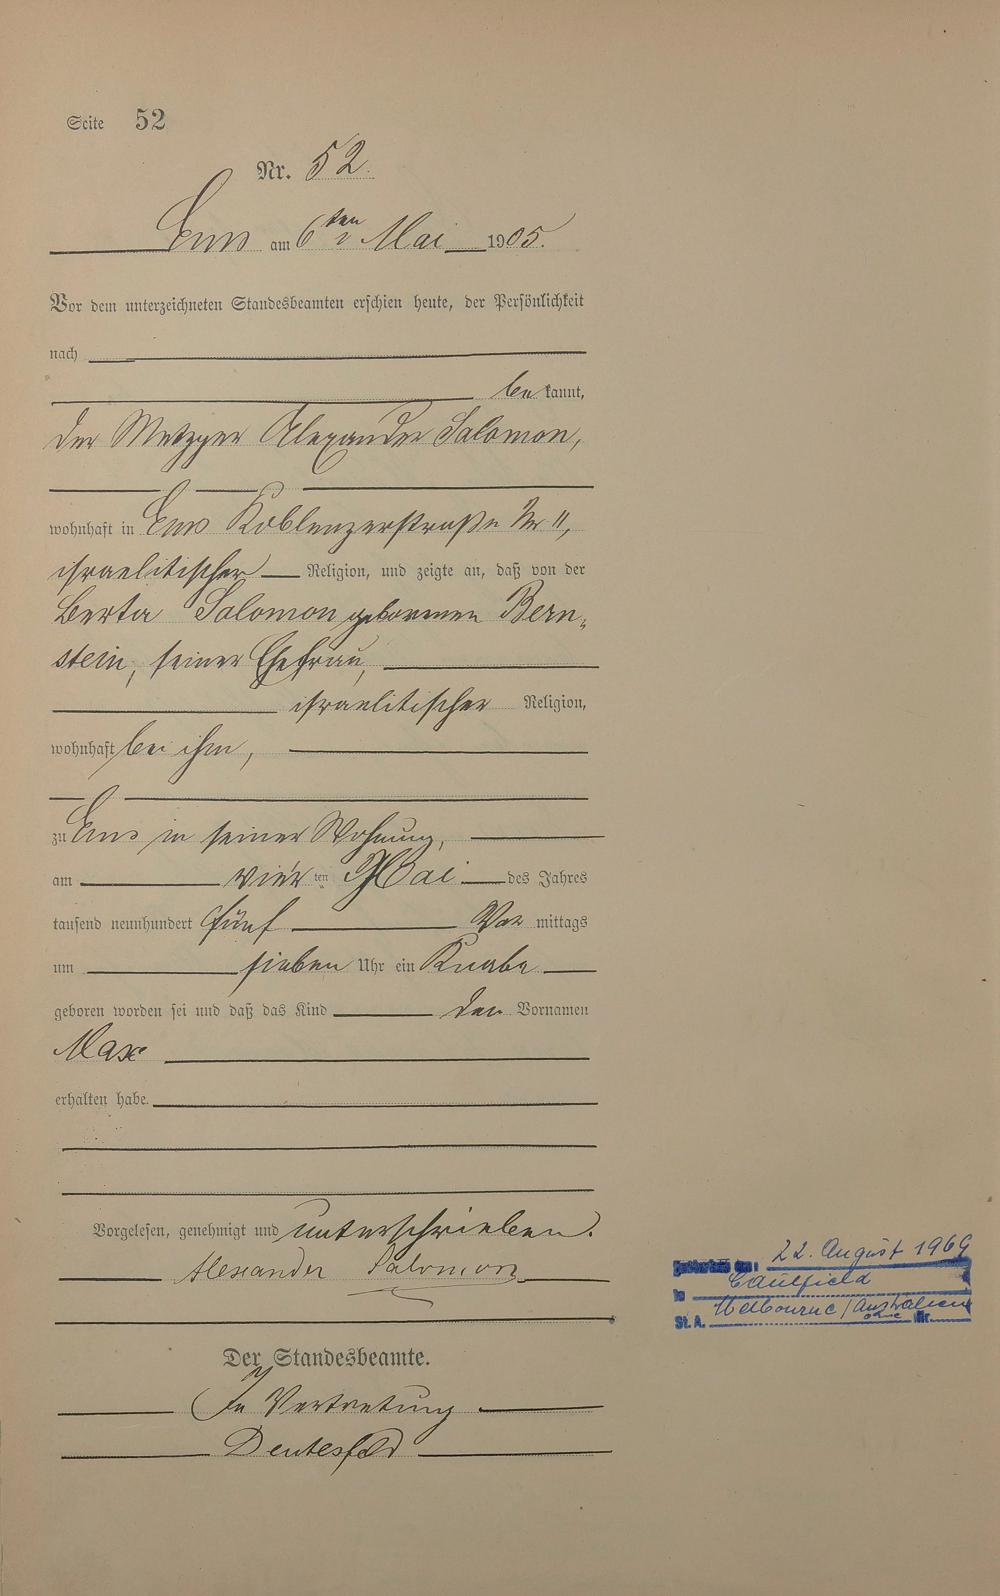 Seite 52
Nr. 52.
Ems am 6ten Mai 1905.
Vor dem unterzeichneten Standesbeamten erschien heute, der Persönlichkeit
nach
bekannt,
der Metzger Alexander Salomon,
wohnhaft in Ems Koblenzerstraße Nr 11,
israelitischer Religion, und zeigte an, daß von der
Berta Salomon geborenen Bern-
stein, seiner Ehefrau,
israelitischer Religion,
wohnhaft bei ihm,
zu Ems in seiner Wohnung,
am vierten Mai des Jahres
tausend neunhundert fünf Vormittags
um sieben Uhr ein Knabe
geboren worden sei und daß das Kind den Vornamen
Max
erhalten habe.
Vorgelesen, genehmigt und unterschrieben.
Alexander Salomon
Der Standesbeamte.
In Vertretung
22. August 1969
in Caulfield
St. A. Melbourne / Australien
ohne Nr.